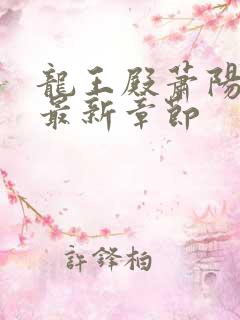 龍王殿蕭陽
最新章節
許鋒柏